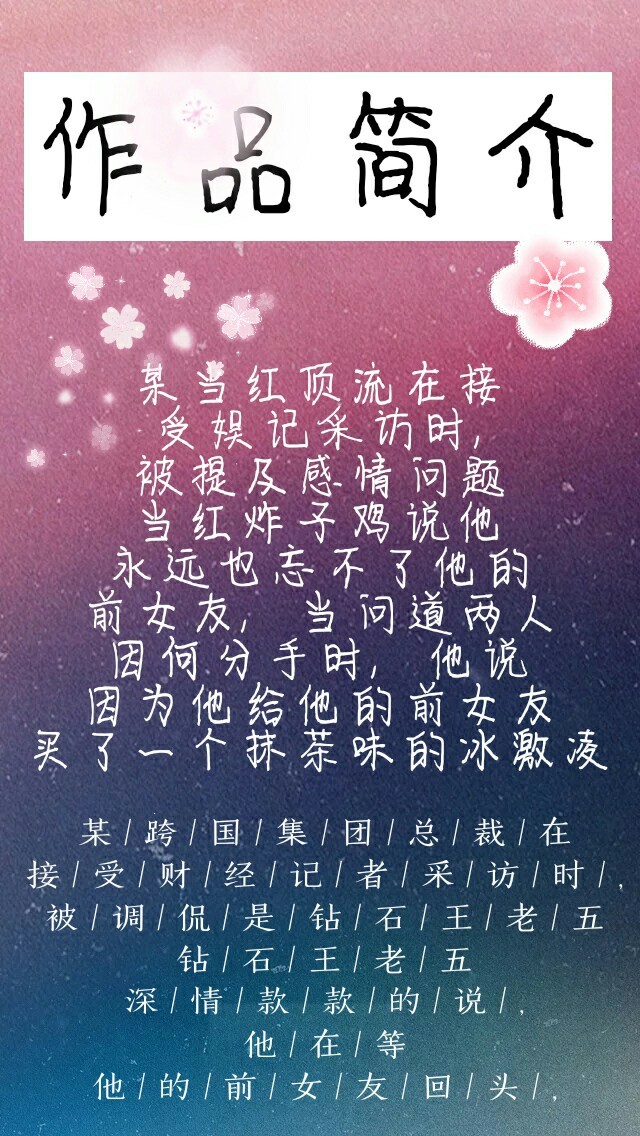 作品简介
某当红顶流在接
受娱记采访时,
被提及感情问题
当红炸子鸡说他
永远也忘不了他的
前女友, 当问道两人
因何分手时, 他说
因为他给他的前女友
买了一个抹茶味的冰激凌
某/跨/国/集/团/总/裁/在
接/受/财/经/记/者/采/访/时/,
被/调/侃/是/钻/石/王/老/五
钻/石/王/老/五
深/情/款/款/的/说/,
他/在/等
他/的/前/女/友/回/头/,